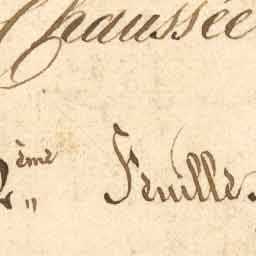 Chaussée
2ème Feuille.